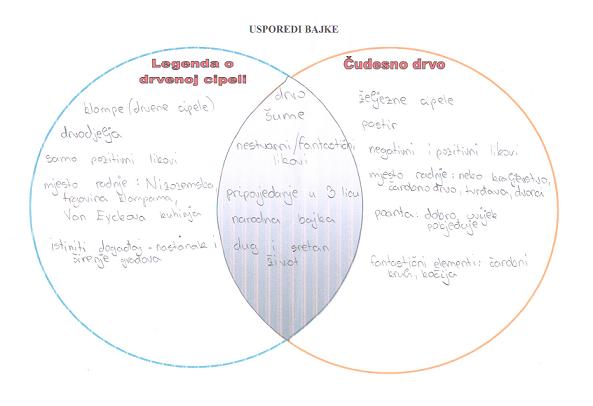 USPOREDI BAJKE
Legenda o
drvenoj cipeli
klompe (drvene cipele)
drvodjelja
samo pozitivni likovi
mjesto radnje: Nizozemska
trgovina klompama,
Van Eyckova kuhinja
istiniti događaj - nastanak i
širenje gradova
drvo
šume
nestvarni/fantastični
likovi
pripovijedanje u 3 licu
narodna bajka
dug i sretan
život
Čudesno drvo
željezne cipele
pastir
negativni i pozitivni likovi
mjesto radnje: nebo kraljevstvo,
čarobno drvo, tvrđava, dvorci
poanta: dobro uvijek
pobjeđuje
fantastični elementi: čarobni
kruh, kočija